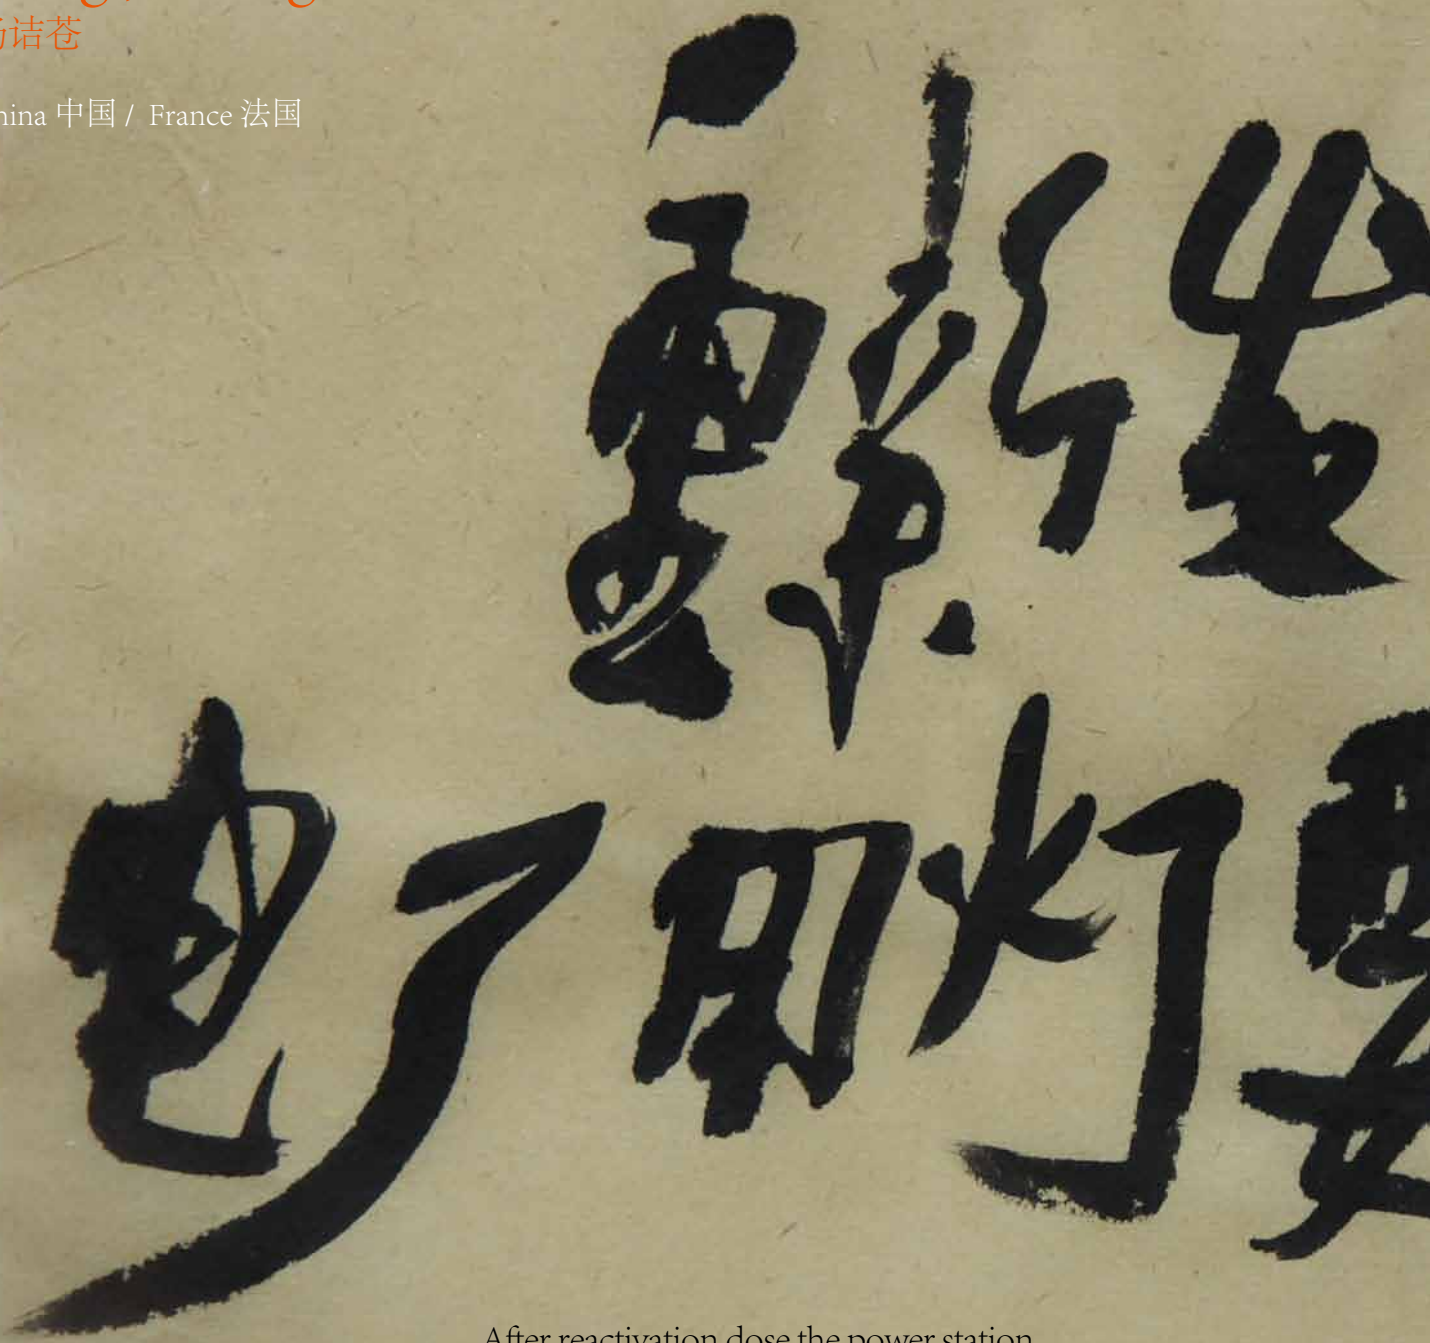 诘苍
ina 中国 / France 法国
重新
电厂用灯要
After reactivation dose the power station